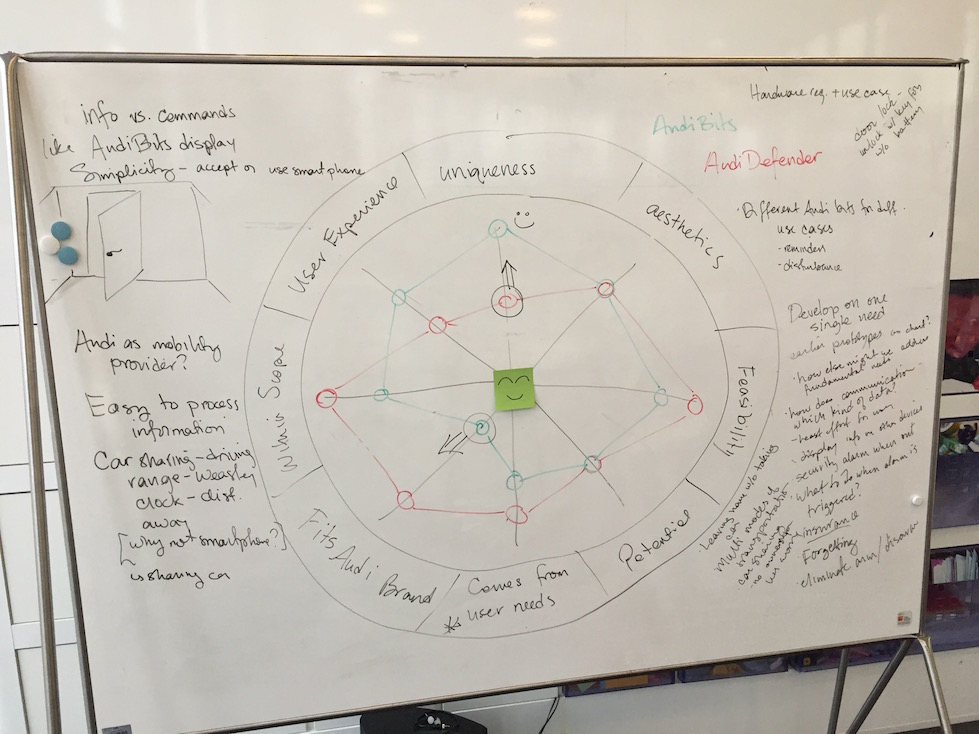 info vs. commands
like AudiBits display
Simplicity - accept or use smartphone
Audi as mobility
provider?
Easy to process
information
Car sharing - driving
range - Weasley
clock - dist.
away
[why not smartphone?]
is sharing car
User Experience
uniqueness
aesthetics
Feasibility
Potential
Comes from
** user needs
Fits Audi Brand
Within Scope
AudiBits
AudiDefender
Hardware req. + use case
door lock -
unlock w/ key fob
w/o button
• Different Audi bits for diff.
use cases
- reminders
- disturbance
Develop on one
single need
earlier prototypes on chart?
• how else might we address
fundamental needs
• how does communication -
which kind of data?
- least effort for user
• display info on other devices
• security alarm when out
• What to do when alarm is
triggered?
insurance
Forgetting
• eliminate arm/disarm
Leaving home w/o taking
car
Multi modes of
transportation
car sharing
- no ownership